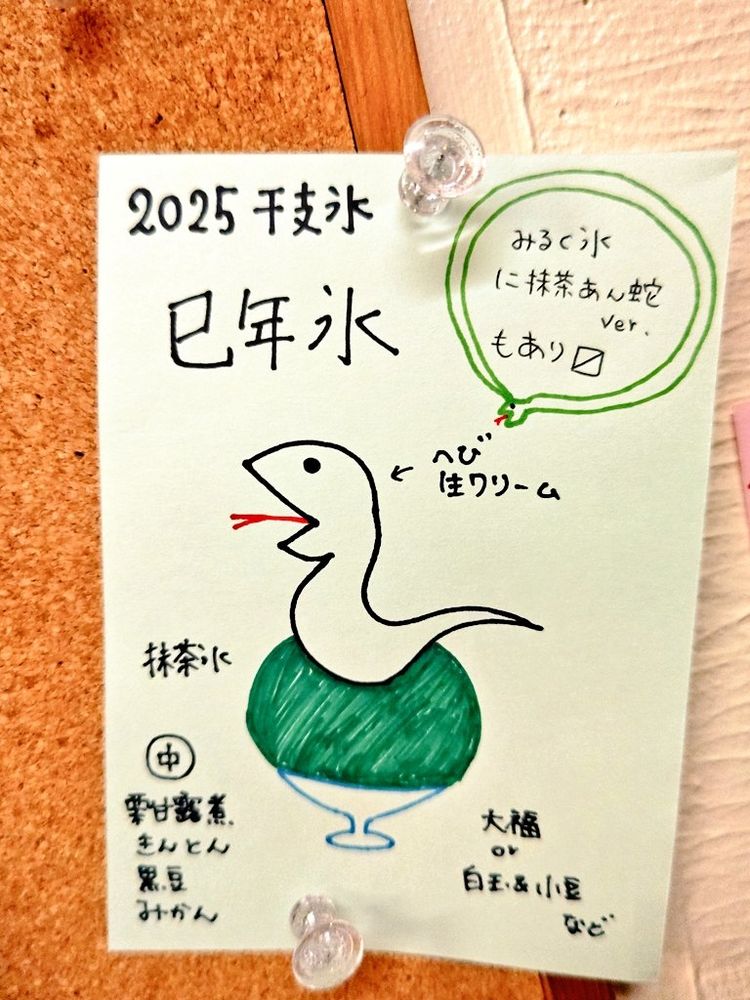 2025 干支氷
巳年氷
みるく氷
に抹茶あん蛇
ver.
もあり〼
へび
生クリーム
抹茶氷
中
栗甘露煮
きんとん
黒豆
みかん
大福
or
白玉&小豆
など